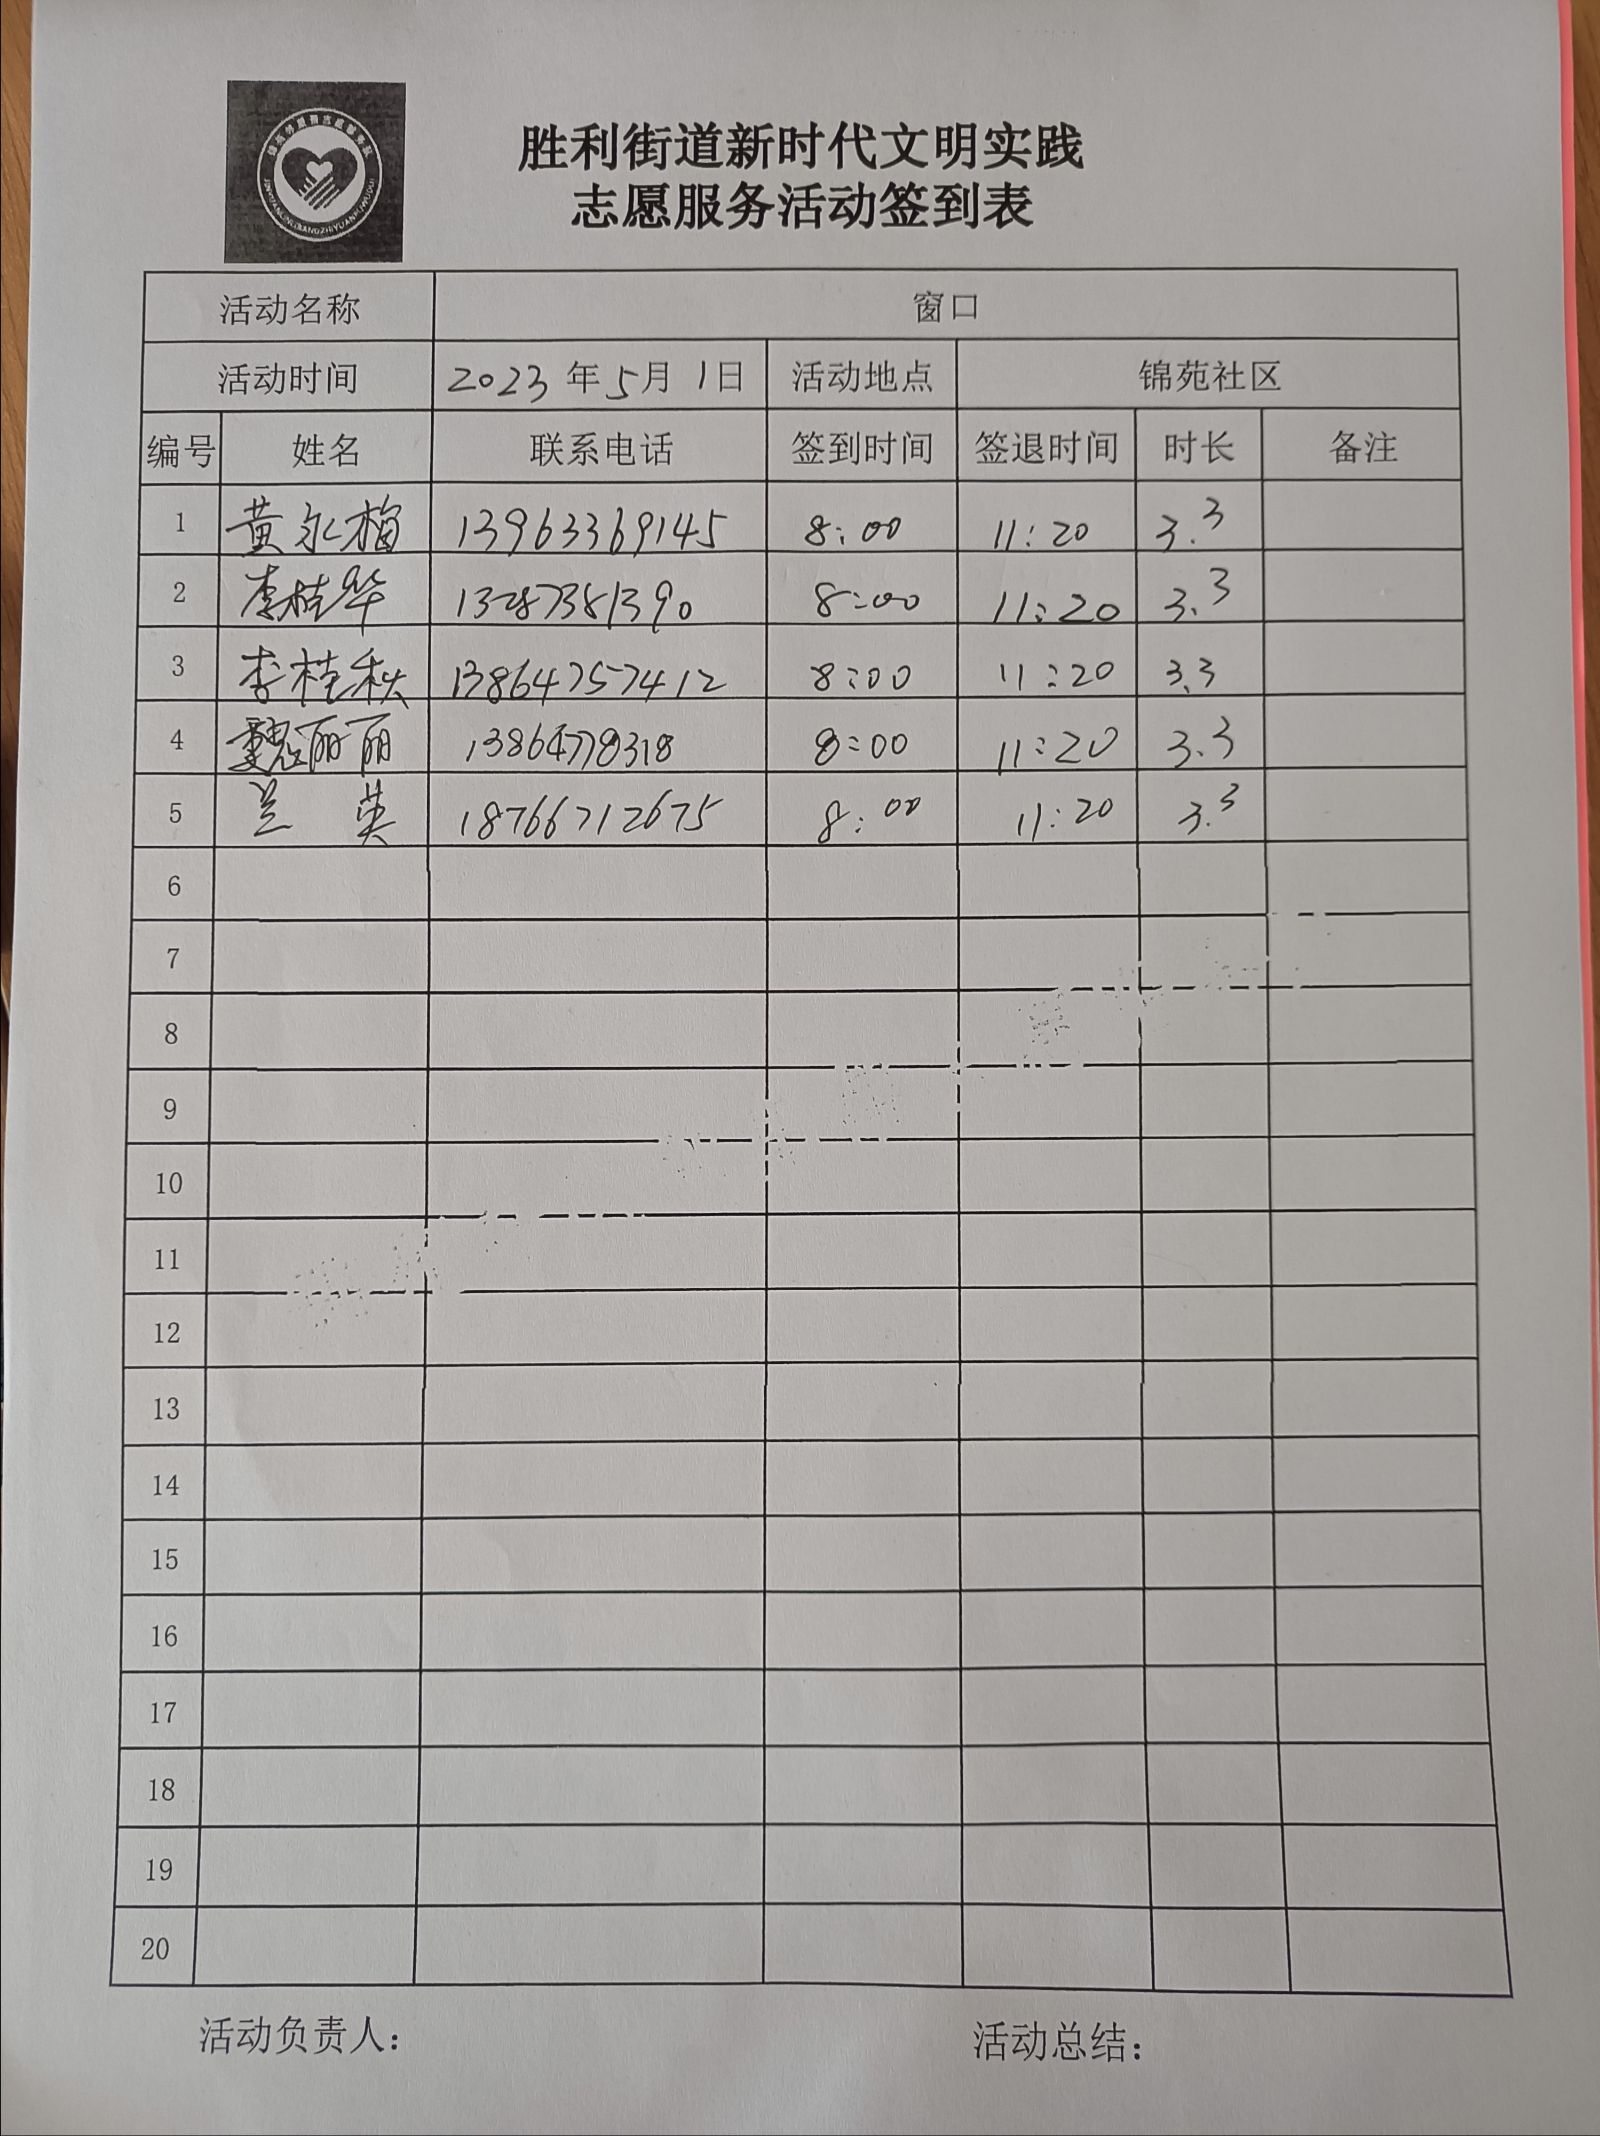 胜利街道新时代文明实践
志愿服务活动签到表
活动名称 窗口
活动时间 2023年5月1日 活动地点 锦苑社区
编号 姓名 联系电话 签到时间 签退时间 时长 备注
1 黄永梅 13963369145 8:00 11:20 3.3
2 李桂华 13287381390 8:00 11:20 3.3
3 李桂秋 13864757412 8:00 11:20 3.3
4 魏丽丽 13864778318 8:00 11:20 3.3
5 兰英 18766712675 8:00 11:20 3.3
6
7
8
9
10
11
12
13
14
15
16
17
18
19
20
活动负责人: 活动总结: